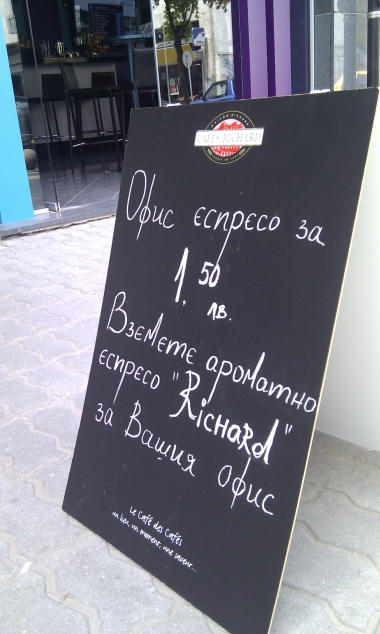 CAFÉS RICHARD
Офис еспресо за
1.50
лв.
Вземете ароматно
еспресо "Richard"
за Вашия офис
Le Café des Cafés
un lieu, un moment, une saveur...